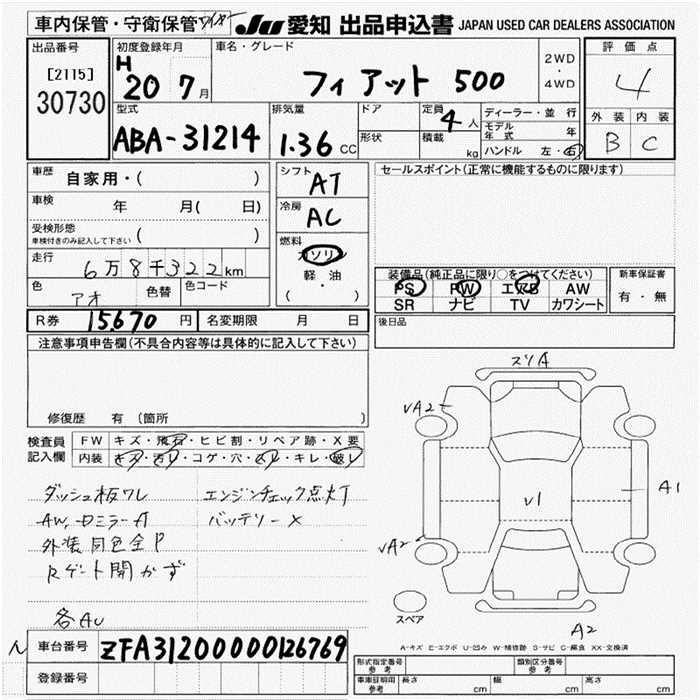 車内保管・守衛保管 ワイパー JU 愛知 出品申込書 JAPAN USED CAR DEALERS ASSOCIATION
出品番号
[2115]
30730
初度登録年月
H 20 7月
車名・グレード
フィアット 500
2WD
・
4WD
評価点
4
外装 内装
B C
型式
ABA-31214
排気量
1.36 CC
ドア
形状
定員 4人
積載 kg
ディーラー・並行
モデル年式 年
ハンドル 左・右
車歴 自家用・( )
車検 年 月( 日)
受検形態
車検付きのみ記入して下さい ( )
走行 6万8千322km
色 アオ 色替 色コード
シフト AT
冷房 AC
燃料
ガソリン
軽・油
( ・ )
セールスポイント(正常に機能するものに限ります)
装備品(純正品に限り○をつけてください)
PS PW エアB AW
SR ナビ TV カワシート
新車保証書
有・無
R券 15,670 円 名変期限 月 日
後日品
注意事項申告欄(不具合内容等は具体的に記入して下さい)
修復歴 有(箇所 )
検査員記入欄
FW キズ・飛石・ヒビ割・リペア跡・X要
内装 キズ・汚レ・コゲ・穴・スレ・キレ・破レ
ダッシュ板ワレ エンジンチェック点灯
AW、Dミラー A バッテリー ×
外装同色全P
Rゲート開かず
各AU
スリA
VA2
A1
V1
VA2
スペア
A2
A-キズ E-エクボ U-凹み W-補修跡 S-サビ C-腐食 XX-交換済
ん
車台番号 ZFA31200000126769
登録番号
形式指定番号 参考 類別区分番号 参考
車庫証明用 参考 長さ cm 幅 cm 高さ cm